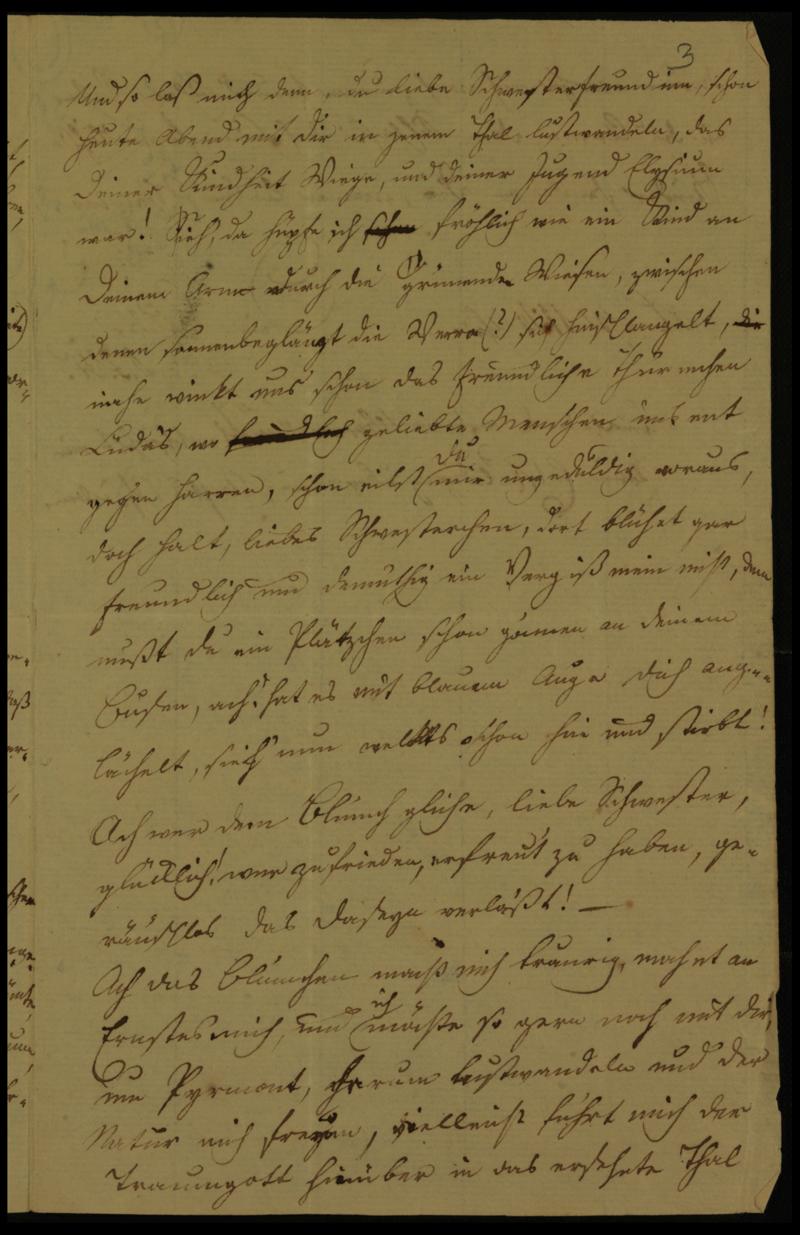 3
Und so laß mich denn, du liebe Schwesterfreundinn, schon
heute Abend mit Dir in jenem Thal lustwandeln, das
Deiner Kindheit Wiege, und Deiner Jugend Elysium
war! Sieh, da hüpfe ich schon fröhlich wie ein Kind an
Deinem Arm durch die grünenden Wiesen, zwischen
denen sonnenbeglänzt die Werra (?) sich hinschlängelt,
nahe winkt uns schon das freundliche Thürmchen
wo geliebte Menschen uns ent
gegen harren, schon eilst du mir ungeduldig voraus,
doch halt, liebes Schwesterchen, dort blühet gar
freundlich und demuthig ein Vergißmeinnicht, dem
mußt du ein Plätzchen schon gönnen an Deinem
Busen, ach! hat es mit blauem Auge Dich ange-
lächelt, sieh nun welkts schon hin und stirbt!
Ach wer dem Blümch gliche, liebe Schwester,
glücklich! wer zufrieden, erfreut zu haben, ge-
räuschlos das Daseyn verläßt! —
Ach das Blümchen macht mich traurig, mahnt an
Ernstes mich, und ich möchte so gern noch mit Dir,
um Pyrmont, herum lustwandeln und der
Natur mich freuen, vielleicht führt mich der
Traumgott hinüber in das ersehnte Thal